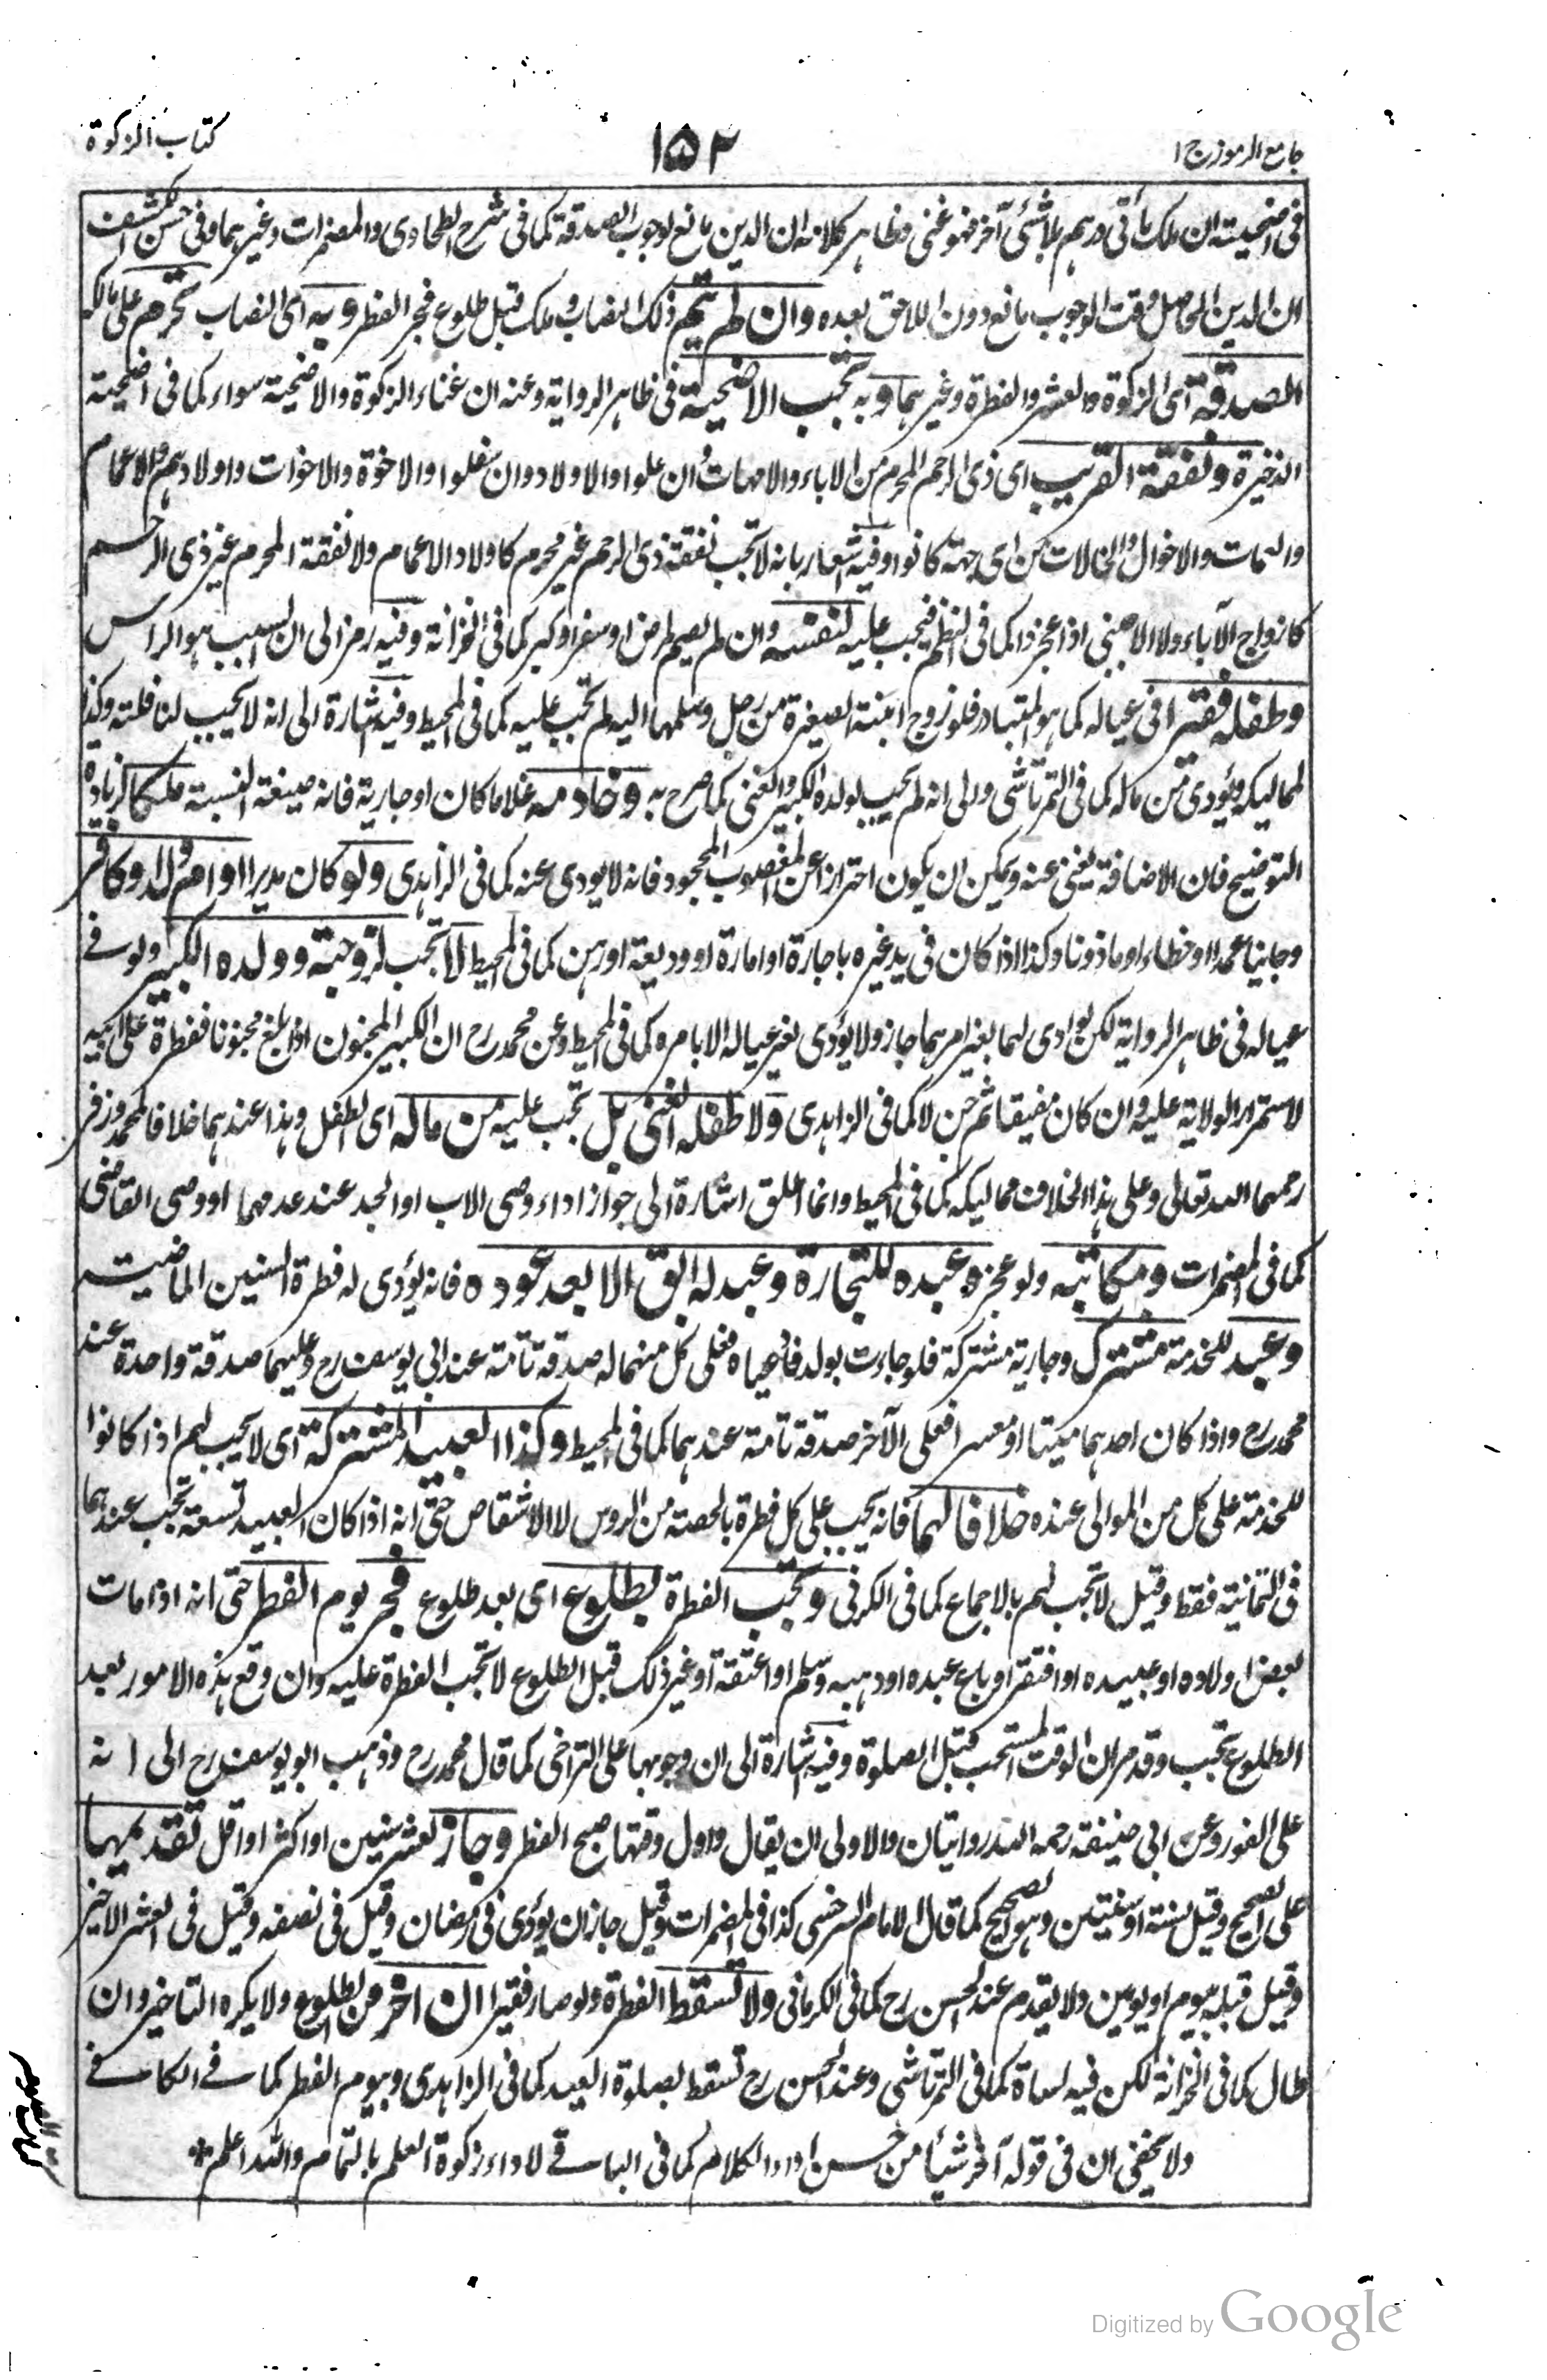 جامع الرموز ج ١
١٥٢
كتاب الزكوة
فى اضحيته ان ملك مأتى درهم بلا شئ آخر فهو غنى وظاهر كلامه ان الدين مانع لوجوب الصدقة كما فى شرح الطحاوى والمضمرات وغيرهما وفى حسن الكشف
ان الدين الحاصل وقت الوجوب مانع دون اللاحق بعده وان لم يتم ذلك النصاب وملك قبل طلوع فجر الفطر وبه اى النصاب تحرم على مالكه
الصدقة اى الزكوة والعشر والفطرة وغيرهما وبه تجب الاضحية فى ظاهر الرواية وعنه ان غناء الزكوة والاضحية سواء كما فى اضحية
الذخيرة ونفقة القريب اى ذى الرحم المحرم من الاباء والامهات وان علوا والاولاد وان سفلوا والاخوة والاخوات واولادهم والاعمام
والعمات والاخوال والخالات من اى جهة كانوا وفيه اشعار بانه لا تجب نفقة ذى الرحم غير محرم كاولاد الاعمام ولا نفقة المحرم غير ذى الرحم
كازواج الآباء ولا الاجنبى اذا عجز ذا كما فى النظم فيجب عليه لنفسه وان لم يصم لمرض او سفر او كبر كما فى الخزانة وفيه رمز الى ان السبب هو الراس
وطفله فقيرا فى عياله كما هو المتبادر فلو زوج ابنته الصغيرة من رجل وسلمها اليه لم تجب عليه كما فى المحيط وفيه اشارة الى انه لا يجب لنافلته وكذا
لمماليكه ويؤدى من ماله كما فى التمرتاشى والى انه لم يجب لولده الكبير والغنى كما صرح به وخادمه غلاما كان او جارية فانه صيغة النسبة ملكا لزيادة
التوضيح فان الاضافة يغنى عنه ويمكن ان يكون احترازا عن المغصوب المجحود فانه لا يودى عنه كما فى الزاهدى ولو كان مدبرا او ام ولد او كافر
وجانيا عمدا او خطاء او ماذونا وكذا اذا كان فى يد غيره باجارة او اعارة او وديعة او رهن كما فى المحيط لا تجب لزوجته وولده الكبير ولو فى
عياله فى ظاهر الرواية لكن لو ادى لهما بغير امرهما جاز ولا يؤدى لغير عياله الا بامره كما فى المحيط وعن محمد رح ان الكبير المجنون اذا بلغ مجنونا ففطرة على ابيه
لاستمرار الولاية عليه وان كان مفيقا ثم جن لا كما فى الزاهدى ولا طفله الغنى بل تجب عليه من ماله اى الطفل وهذا عندهما خلافا لمحمد وزفر
رحمهما الله تعالى وعلى هذا الخلاف مماليكه كما فى المحيط وانما اطلق اشارة الى جواز اداء وصى الاب او الجد عند عدمهما او وصى القاضى
كما فى المضمرات ومكاتبه ولو عجزه وعبده للتجارة وعبد له ابق الا بعد عوده فانه يؤدى له فطرة السنين الماضية
وعبد للخدمة مشترك وجارية مشتركة فلو جاءت بولد فادعياه فعلى كل منهما له صدقة تامة عند ابى يوسف رح وعليهما صدقة واحدة عند
محمد رح واذا كان احدهما ميتا او معسرا فعلى الآخر صدقة تامة عندهما كما فى المحيط وكذا العبيد المشتركة اى لا يجب لهم اذا كانوا
للخدمة على كل من الموالى عنده خلافا لهما فانه يجب على كل فطرة بالحصة من الروس لا الاشقاص حتى انه اذا كان العبيد تسعة تجب عندهما
فى الثمانية فقط وقيل لا تجب لهم بالاجماع كما فى الكرمانى وتجب الفطرة بطلوع اى بعد طلوع فجر يوم الفطر حتى انه اذا مات
بعض اولاده او عبيده او افتقر او باع عبده او وهبه وسلم او اعتقه او غير ذلك قبل الطلوع لا تجب الفطرة عليه وان وقع هذه الامور بعد
الطلوع تجب وقد مر ان الوقت المستحب قبل الصلوة وفيه اشارة الى ان وجوبها على التراخى كما قال محمد رح وذهب ابو يوسف رح الى انه
على الفور وعن ابى حنيفة رحمه الله روايتان والاولى ان يقال واول وقتها صبح الفطر وجاز لعشر سنين او اكثر او اقل تقديمها
على الصحيح وقيل بسنة او سنتين وهو الصحيح كما قال الامام السرخسى كذا فى المضمرات وقيل جاز ان يؤدى فى رمضان وقيل فى نصفه وقيل فى العشر الاخير
وقيل قبله بيوم او يومين ولا يقدم عند الحسن رح كما فى الكرمانى ولا تسقط الفطرة ولو صار فقيرا ان اخر من الطلوع ولا يكره التاخير وان
طال كما فى الخزانة لكن فيه اساءة كما فى التمرتاشى وعند الحسن رح تسقط بصلوة العيد كما فى الزاهدى وبيوم الفطر كما فى الكافى
ولا يخفى ان فى قوله آخر شيأ من حسن اداء الكلام كما فى الباقى لاداء زكوة العلم بالتمام والله اعلم *
Digitized by Google